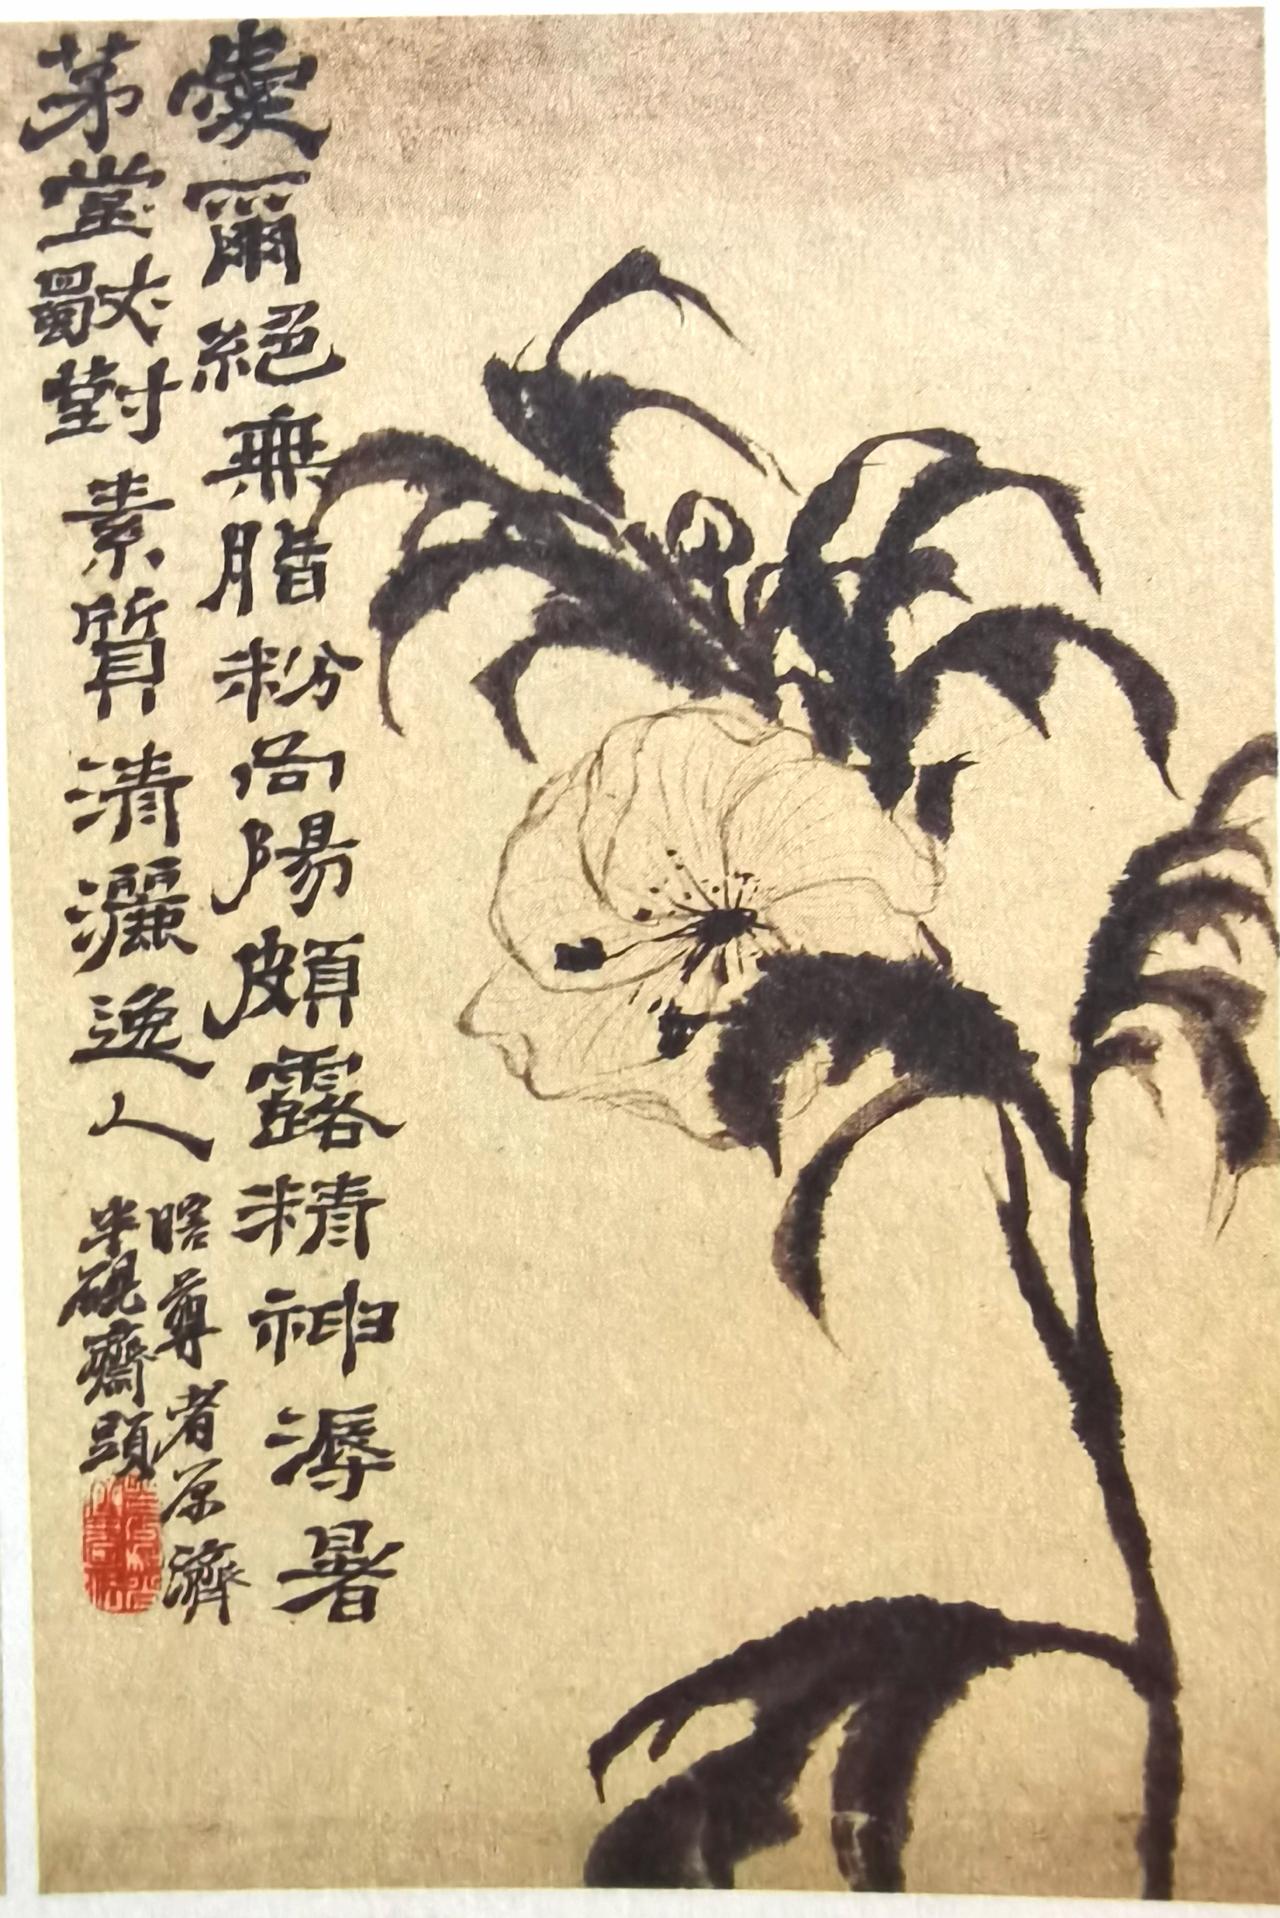 愛爾絕無脂粉尚陽頗露精神溽暑
茅堂獨對素質清灑逸人
瞎尊者原濟
半硯齋頭